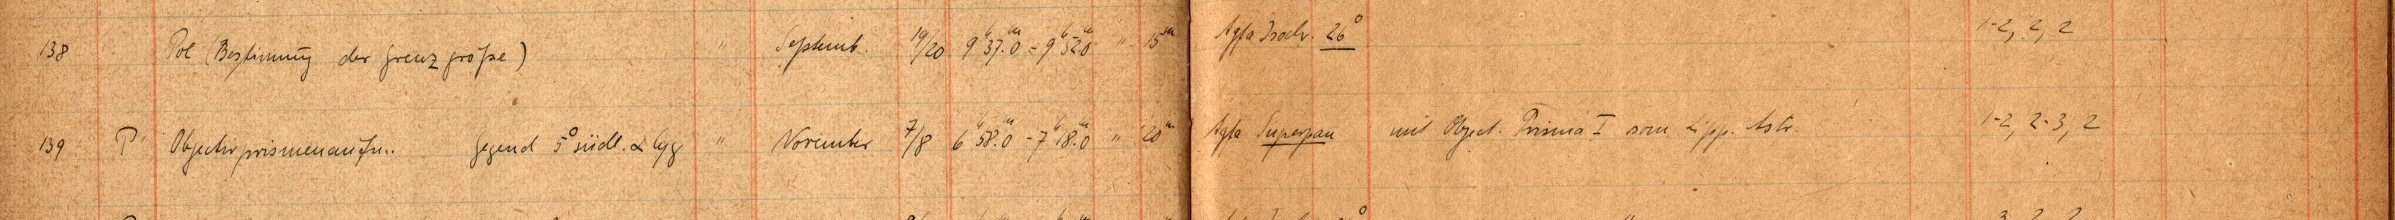 138 Pol (Bestimmung der Grenzgröße) " Septemb. 19/20 9h37m.0 - 9h52m.0 " 15m Agfa Isochr. 26° 1-2, 2, 2
139 P Objectivprismenaufn.. Gegend 5° südl. α Cyg " November 7/8 6h58m.0 - 7h18m.0 " 20m Agfa Superpan mit Object. Prisma I vom Lipp. Astr. 1-2, 2-3, 2